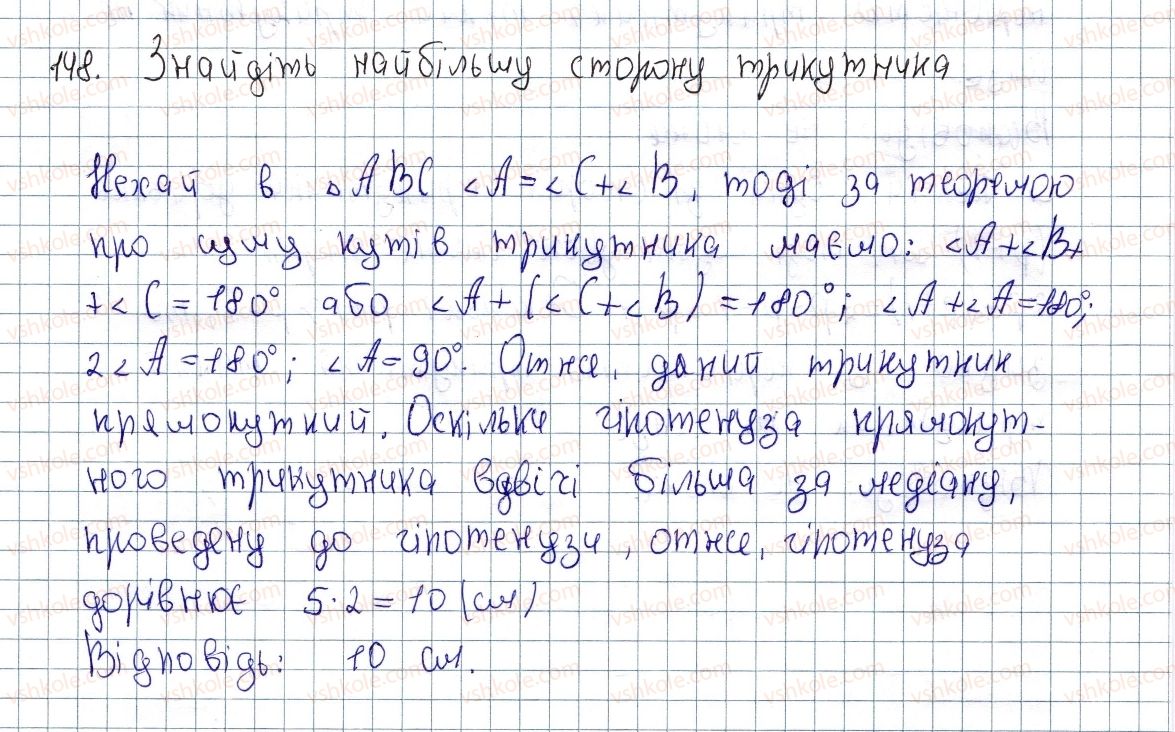 148. Знайдіть найбільшу сторону трикутника
Нехай в △ABC <A=<C+<B, тоді за теоремою
про суму кутів трикутника маємо: <A+<B+
+<C=180° або <A+(<C+<B)=180°; <A+<A=180°;
2<A=180°; <A=90°. Отже, даний трикутник
прямокутний. Оскільки гіпотенуза прямокут-
ного трикутника вдвічі більша за медіану,
проведену до гіпотенузи, отже, гіпотенуза
дорівнює 5·2=10 (см)
Відповідь: 10 см.
vshkole.com